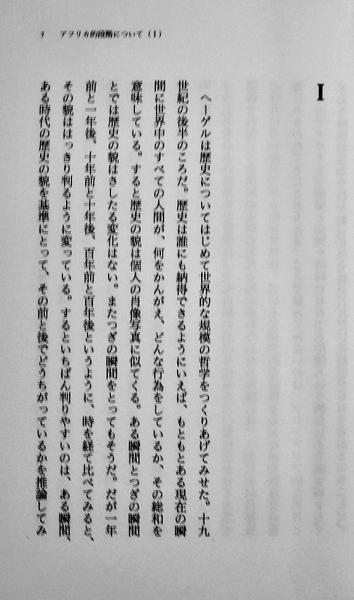 7　アフリカ的段階について（I）
I
ヘーゲルは歴史についてはじめて世界的な規模の哲学をつくりあげてみせた。十九
世紀の後半のころだ。歴史は誰にも納得できるようにいえば、もともとある現在の瞬
間に世界中のすべての人間が、何をかんがえ、どんな行為をしているか、その総和を
意味している。すると歴史の貌は個人の肖像写真に似てくる。ある瞬間とつぎの瞬間
とでは歴史の貌はさしたる変化はない。またつぎの瞬間をとってもそうだ。だが一年
前と一年後、十年前と十年後、百年前と百年後というように、時を経て比べてみると、
その貌ははっきり判るように変っている。するといちばん判りやすいのは、ある瞬間、
ある時代の歴史の貌を基準にとって、その前と後でどうちがっているかを推論してみ